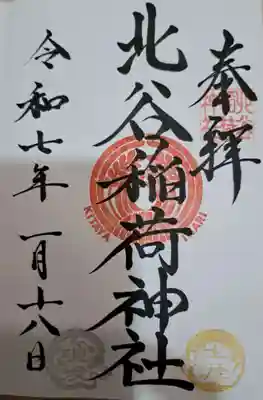 奉拝
北谷稲荷神社
令和七年一月十八日
KITAYA INARI